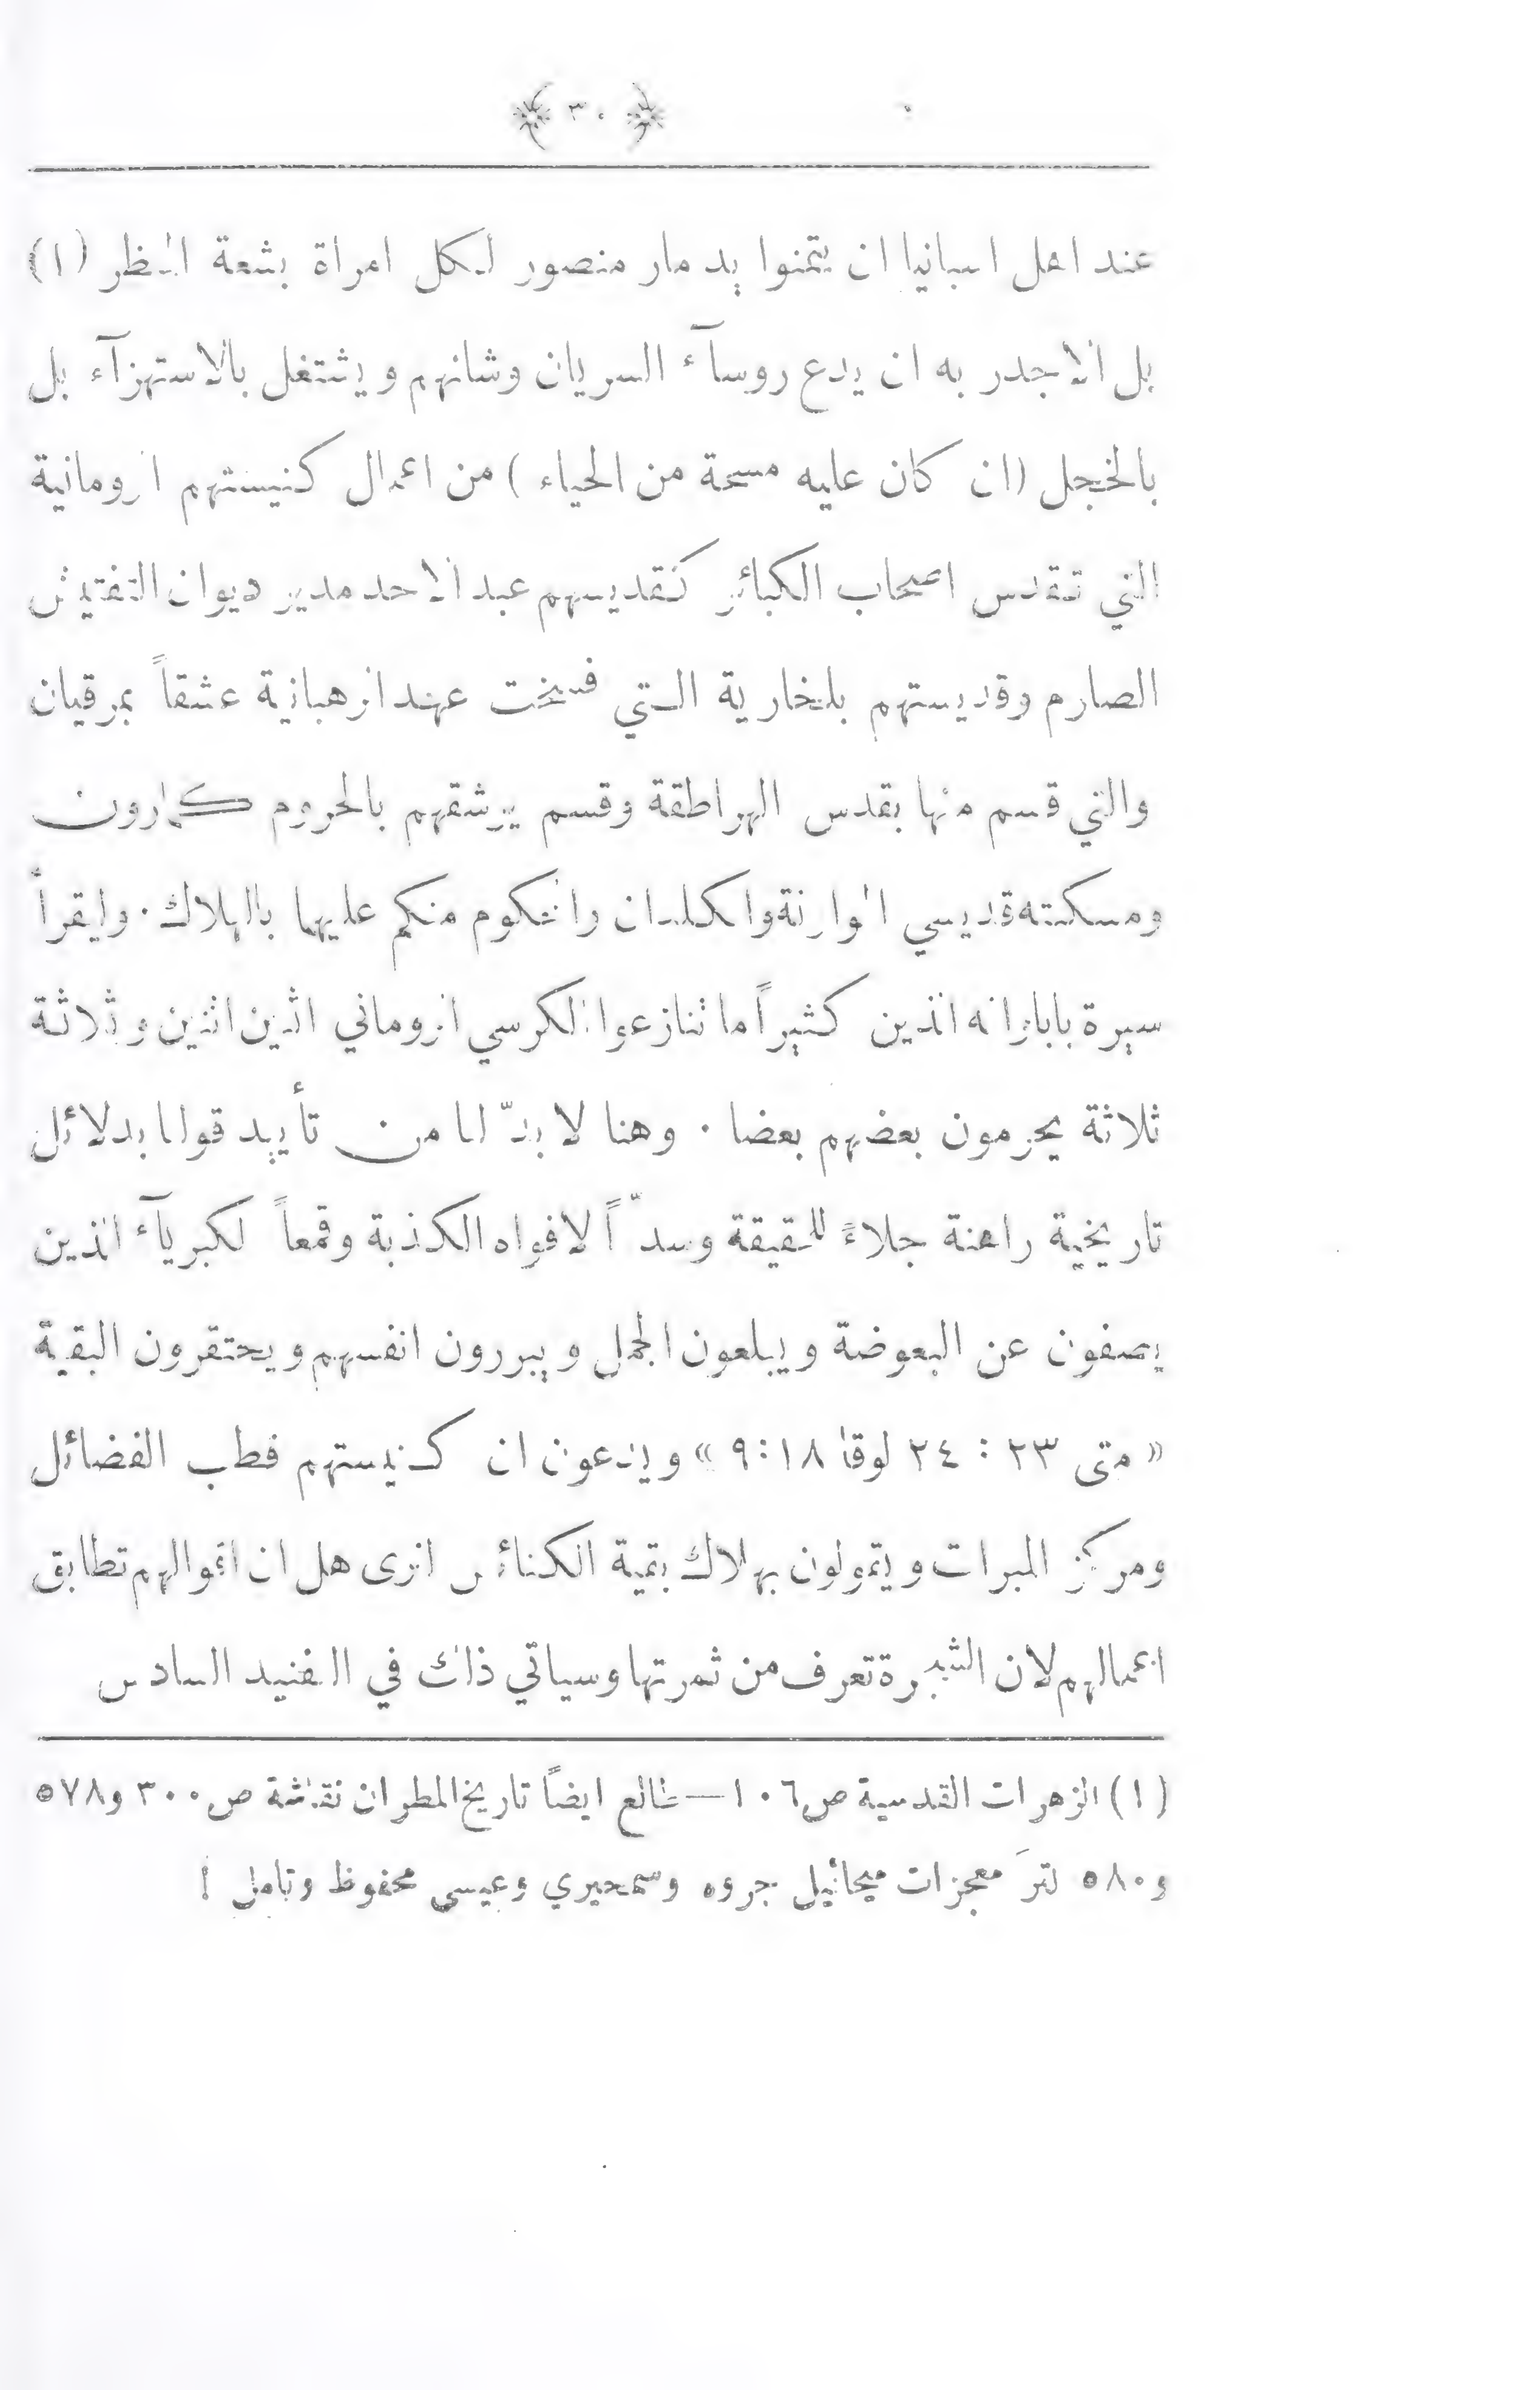 ٣٠
عند اهل اسبانيا ان يتمنوا يد مار منصور لكل امراة بشعة المنظر (١)
بل الاجدر به ان يدع روسآء السريان وشانهم ويشتغل بالاستهزآء بل
بالخجل (ان كان عليه مسحة من الحياء) من اعمال كنيستهم الرومانية
التي تقدس اصحاب الكبائر كتقديسهم عبد الاحد مدير ديوان التفتيش
الصارم وقديستهم بلخارية التي فسخت عهد الرهبانية عشقاً بمرقيان
والتي قسم منها يقدس الهراطقة وقسم يرشقهم بالحروم كمارون
ومسكنته قديسي الموارنة والكلدان والمحكوم منكم عليهما بالهلاك. وليقرأ
سيرة باباواته الذين كثيراً ما تنازعوا الكرسي الروماني اثنين اثنين وثلاثة
ثلاثة يحرمون بعضهم بعضا. وهنا لا بدّ لنا من تأييد قولنا بدلائل
تاريخية راهنة جلاءً للحقيقة وسدّاً لافواه الكذبة وقمعاً لكبريآء الذين
يصفون عن البعوضة ويبلعون الجمل ويبررون انفسهم ويحتقرون البقية
« متى ٢٣ : ٢٤ لوقا ١٨:٩ » ويدعون ان كنيستهم قطب الفضائل
ومركز المبرات ويقولون بهلاك بقية الكنائس لنرى هل ان اقوالهم تطابق
اعمالهم لان الشجرة تعرف من ثمرتها وسياتي ذلك في التفنيد السادس
(١) الزهرات القدسية ص ١٠٦ — طالع ايضاً تاريخ المطران نقاشة ص ٣٠٠ و٥٧٨
و٥٨٠ لترَ معجزات ميخائيل جروه وسمحيري وعيسى محفوظ وتامل !